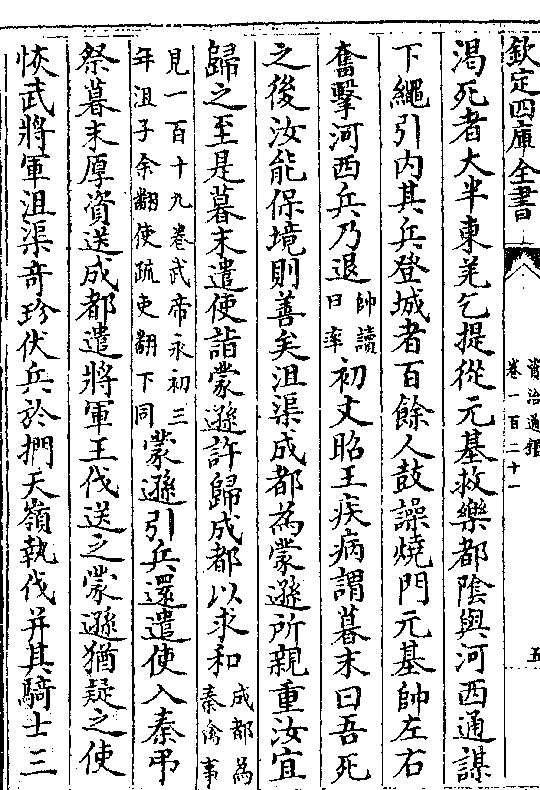 欽定四庫全書
資治通鑑
卷一百二十一
五
渴死者大半東羌乞提從元基救樂都陰與河西通謀
下繩引内其兵登城者百餘人鼓譟燒門元基帥左右
奮擊河西兵乃退帥讀曰率初文昭王疾病謂暮末曰吾死
之後汝能保境則善矣沮渠成都為蒙遜所親重汝宜
歸之至是暮末遣使詣蒙遜許歸成都以求和成都為秦禽事
見一百十九卷武帝永初三年沮子余翻使疏吏翻下同蒙遜引兵還遣使入秦弔
祭暮末厚資送成都遣將軍王伐送之蒙遜猶疑之使
恢武將軍沮渠奇珍伏兵於捫天嶺執伐并其騎士三